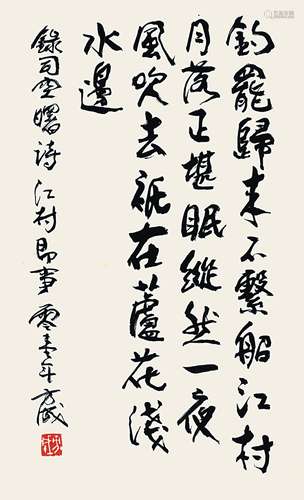 釣罷歸来不繫船江村
月落正堪眠縱然一夜
風吹去祇在蘆花淺
水邊
錄司空曙詩江村即事零壹年方成